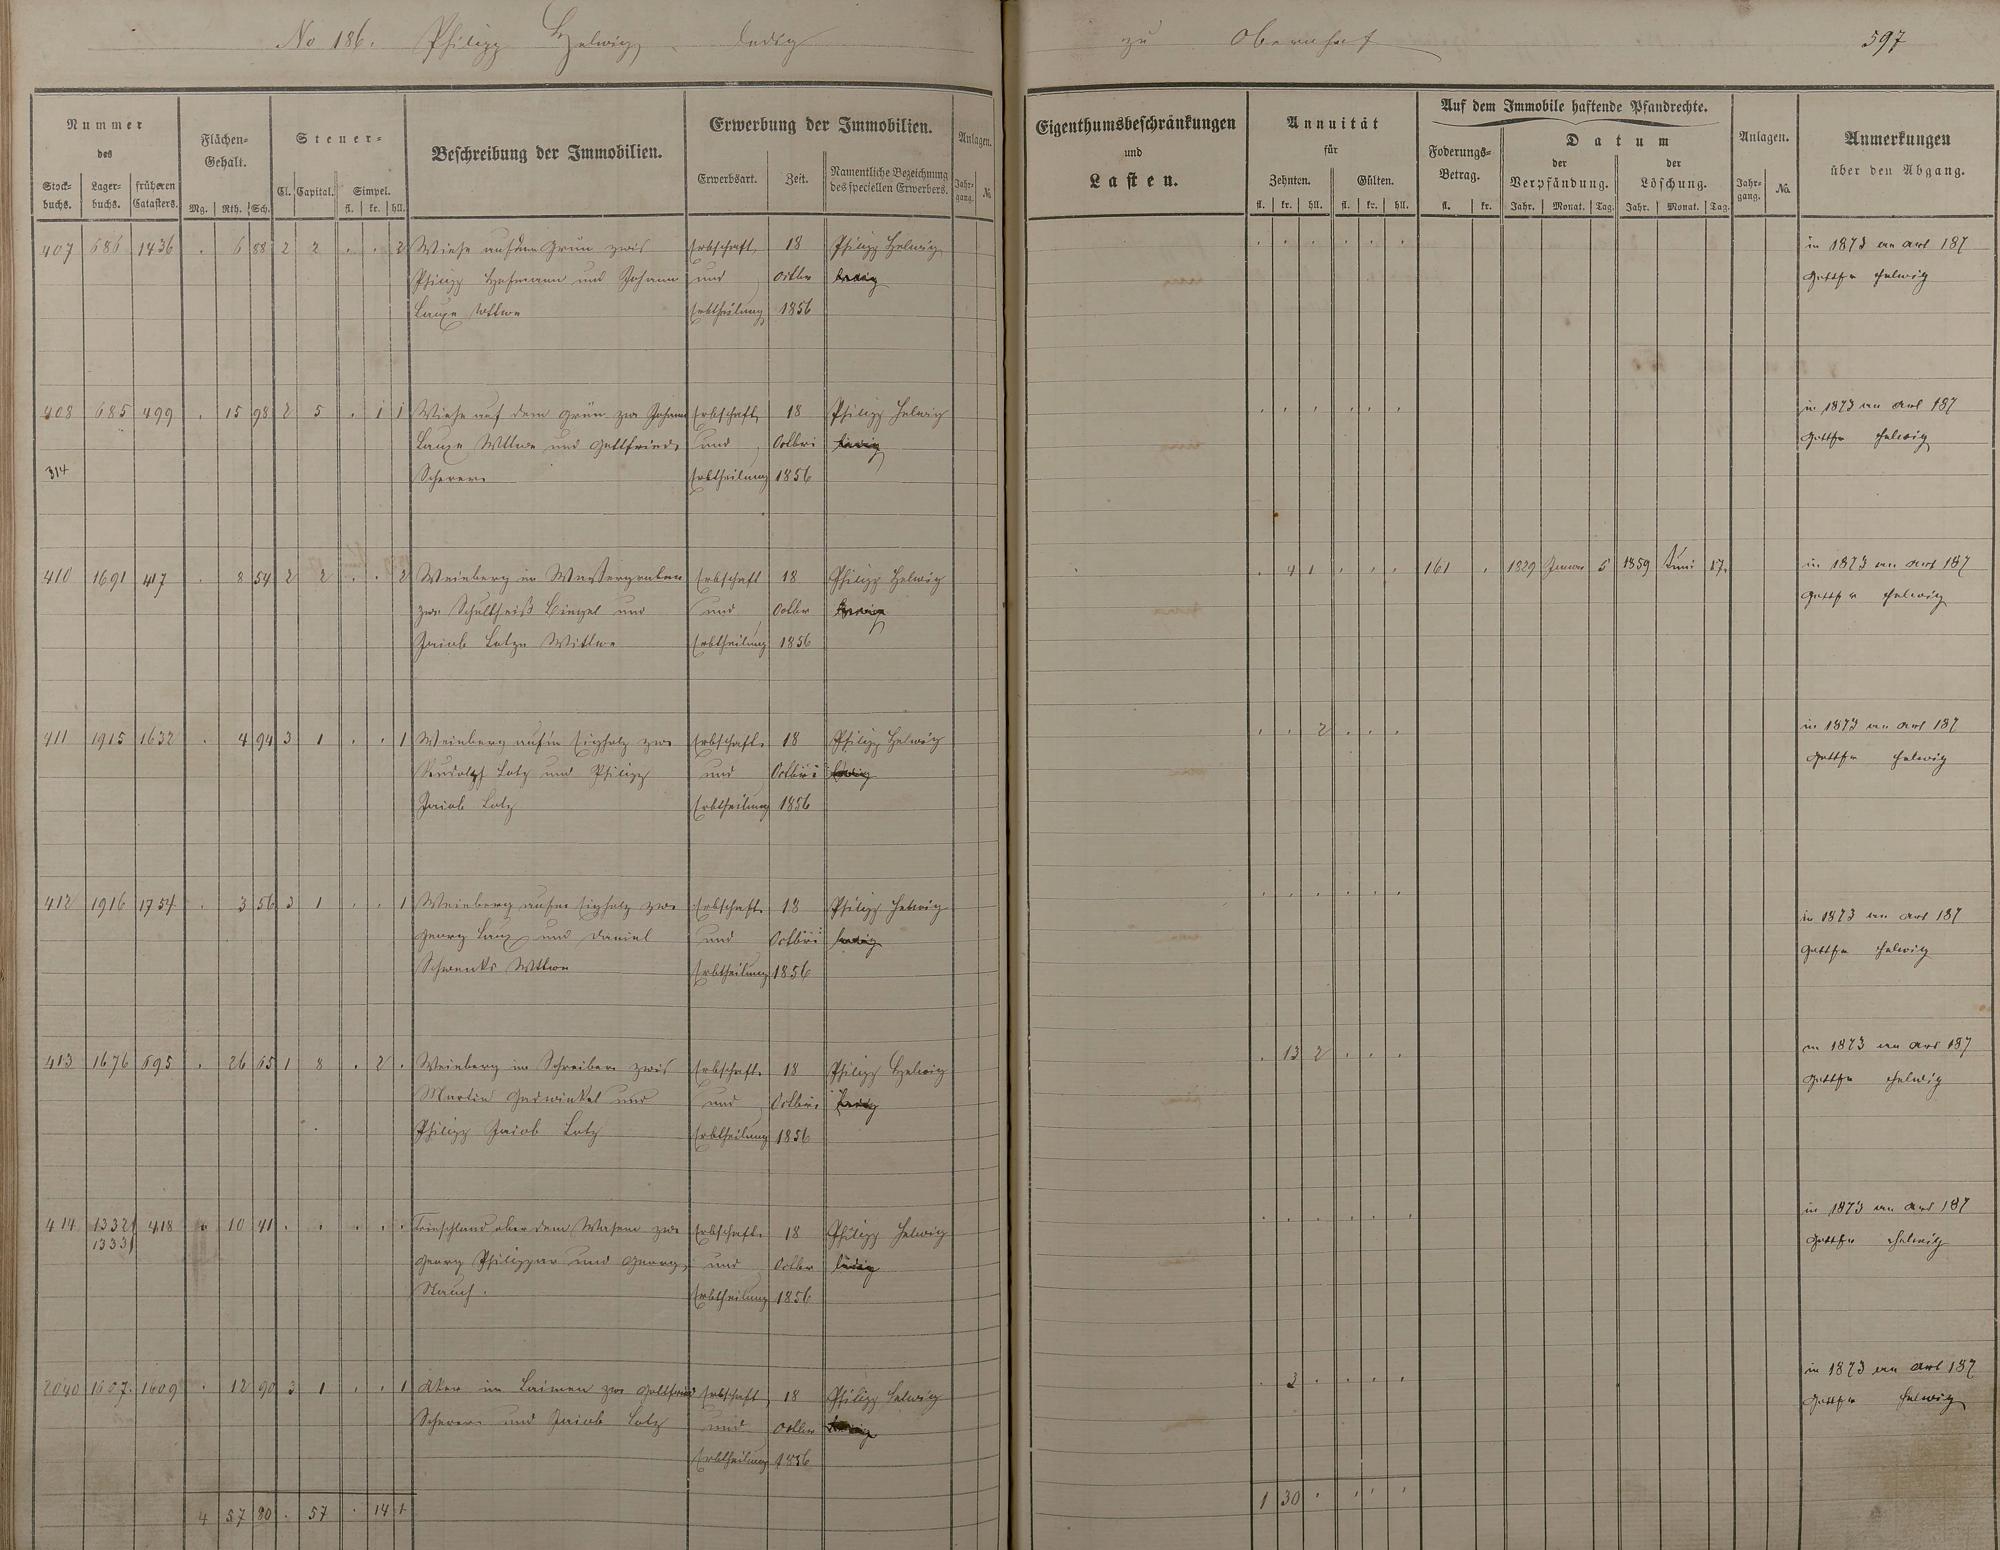 No 186. Philipp Helwig, ledig zu Obernhof 597
Nummer des
Stockbuchs. Lagerbuchs. früheren Catasters.
Flächen-Gehalt.
Mg. Rth. Sch.
Steuer-
Cl. Capital. Simpel.
fl. kr. hll.
Beschreibung der Immobilien.
Erwerbung der Immobilien.
Erwerbsart. Zeit. Namentliche Bezeichnung des speciellen Erwerbers.
Anlagen.
Jahrgang. No.
Eigenthumsbeschränkungen
und
Lasten.
Annuität
für
Zehnten. Gülten.
fl. kr. hll. fl. kr. hll.
Auf dem Immobile haftende Pfandrechte.
Foderungs-Betrag.
fl. kr.
Datum
der Verpfändung. der Löschung.
Jahr. Monat. Tag. Jahr. Monat. Tag.
Anlagen.
Jahrgang. No.
Anmerkungen
über den Abgang.
407 686 1436 . 6 88 2 2 . . 2 Wiese auf dem Grün zwis Erbschaft 18 Philipp Helwig in 1873 an art 187
Philipp Hofmann und Johann und Octbr ledig Gottfr Helwig
Laux Wittwe Erbtheilung 1856
408 685 499 . 15 98 2 5 . 1 1 Wiese auf dem Grün zw Johann Erbschaft 18 Philipp Helwig in 1873 an art 187
Laux Wttwe und Gottfried und Octbr ledig Gottfr Helwig
314 Scherer Erbtheilung 1856
410 1691 417 . 8 54 2 2 . . 2 Weinberg im Wassergraben Erbschaft 18 Philipp Helwig . 4 1 . . . 161 . 1829 Januar 5 1859 Juni 17. in 1873 an art 187
zw Schultheiß Bingel und und Octbr ledig Gottfr Helwig
Jacob Lotz Wittwe Erbtheilung 1856
411 1915 1632 . 4 94 3 1 . . 1 Weinberg aufm zw Erbschaft 18 Philipp Helwig . . 2 . . . in 1873 an art 187
Rudolph Lotz und Philipp und Octbr ledig Gottfr Helwig
Jacob Lotz Erbtheilung 1856
412 1916 1754 . 3 56 3 1 . . 1 Weinberg aufm zw Erbschaft 18 Philipp Helwig in 1873 an art 187
Georg Laux und Daniel und Octbr ledig Gottfr Helwig
Schrenks Wttwe Erbtheilung 1856
413 1676 695 . 26 65 1 8 . 2 . Weinberg im Schreiber zwis Erbschaft 18 Philipp Helwig . 13 2 . . . in 1873 an art 187
Martin und und Octbr ledig Gottfr Helwig
Philipp Jacob Lotz Erbtheilung 1856
414 1332 418 10 41 . . . . . Trieschland ober dem Wasem zw Erbschaft 18 Philipp Helwig in 1873 an art 187
1333 Georg Philippar und Georg und Octbr ledig Gottfr Helwig
Rauch. Erbtheilung 1856
2040 1607. 1609 . 12 90 3 1 . . 1 Aker im Laimen zw Gottfried Erbschaft 18 Philipp Helwig . 3 . . . . in 1873 an art 187
Scherer und Jacob Lotz und Octbr ledig Gottfr Helwig
Erbtheilung 1856
4 57 80 . 57 . 14 1 1 30 . . . .